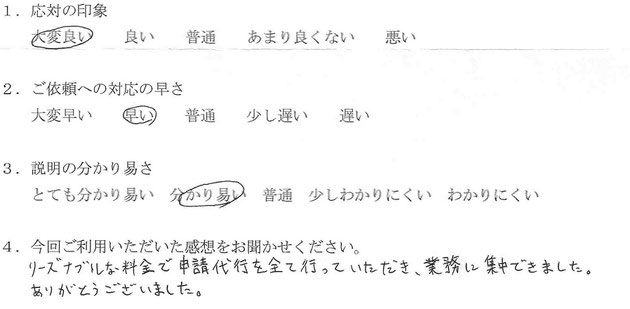 1．応対の印象
大変良い　良い　普通　あまり良くない　悪い
2．ご依頼への対応の早さ
大変早い　早い　普通　少し遅い　遅い
3．説明の分かり易さ
とても分かり易い　分かり易い　普通　少しわかりにくい　わかりにくい
4．今回ご利用いただいた感想をお聞かせください。
リーズナブルな料金で申請代行を全て行っていただき、業務に集中できました。
ありがとうございました。